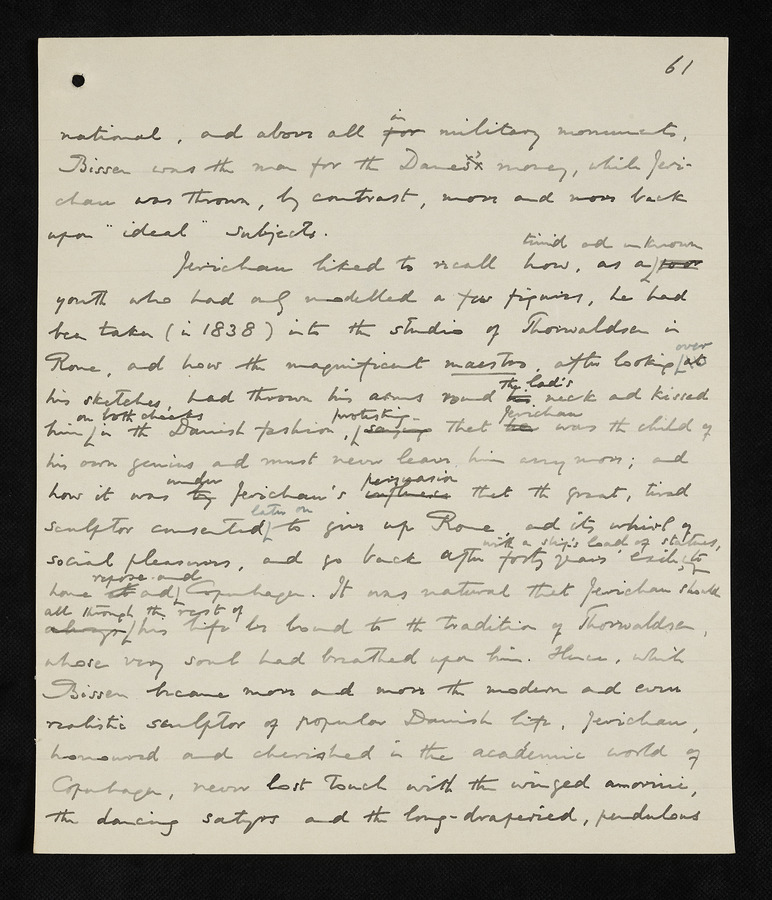 61
in
national, and above all for military monuments,
Bissen was the man for the Danes' money, while Jeri-
chau was thrown, by contrast, more and more back
upon "ideal" subjects.
timid and unknown
Jerichau liked to recall how, as a poor
youth who had only modelled a few figures, he had
been taken (in 1838) into the studio of Thorwaldsen in
over
Rome, and how the magnificent maestro, after looking at
the lad's
his sketches, had thrown his arms round his neck and kissed
on both cheeks protesting Jerichau
him in the Danish fashion, saying that he was the child of
his own genius and must never leave him any more; and
under persuasion
how it was by Jerichau's influence that the great, tired
later on
sculptor consented to give up Rome, and its whirl of
with a ship's load of statues,
social pleasures, and go back after forty years' exile, to
repose and
home and Copenhagen. It was natural that Jerichau should
all through the rest of
always his life be bound to the tradition of Thorwaldsen,
whose very soul had breathed upon him. Hence, while
Bissen became more and more the modern and even
realistic sculptor of popular Danish life, Jerichau,
honoured and cherished in the academic world of
Copenhagen, never lost touch with the winged amorini,
the dancing satyrs and the long-draperied, pendulous